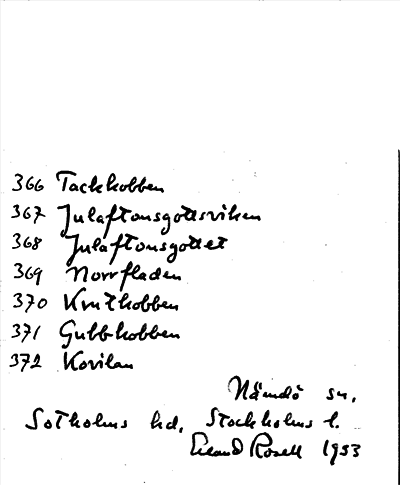 366 Tackkobben
367 Julaftonsgottsviken
368 Julaftonsgottet
369 Norrfladen
370 Krutkobben
371 Gubbkobben
372 Korilan
Nämdö sn.
Sotholms hd. Stockholms l.
Erland Rosell 1953